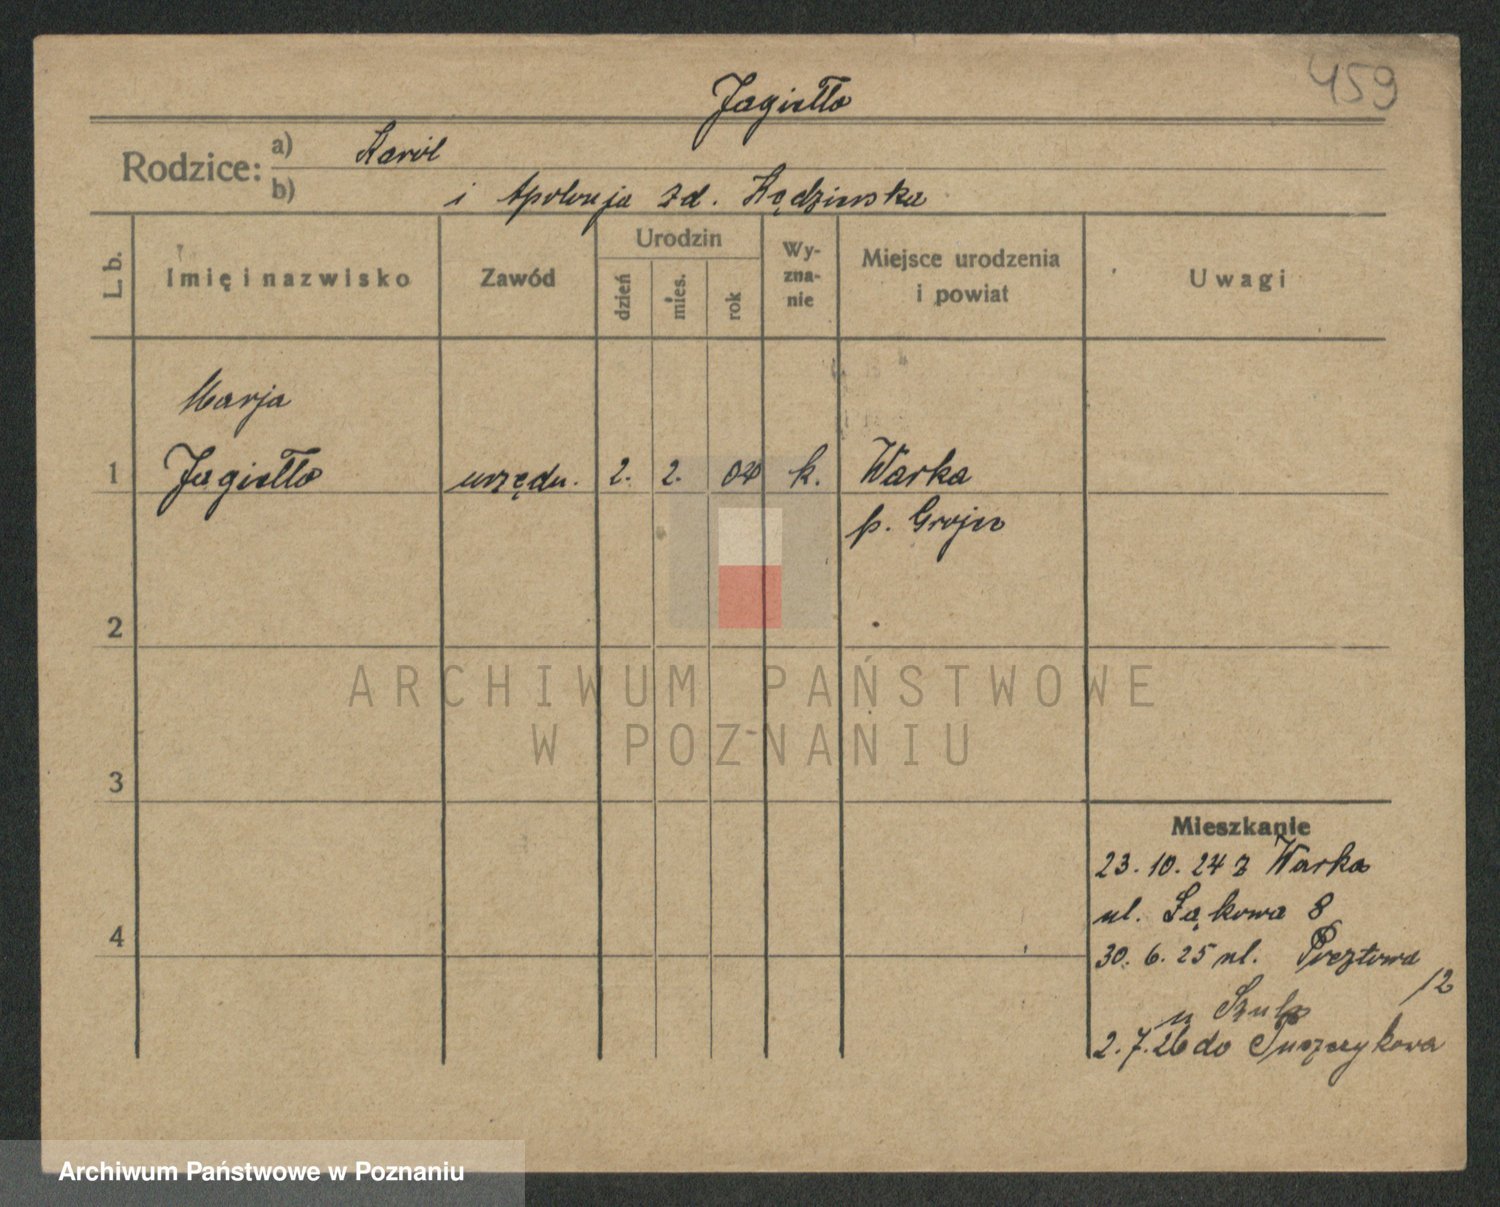 459
Jagiełło
Rodzice:
a) Karól
b) i Apolonja zd. Kędzierska
L. b.
Imię i nazwisko
Zawód
Urodzin
dzień
mies.
rok
Wy-
zna-
nie
Miejsce urodzenia
i powiat
Uwagi
Marja
1 Jagiełło urzędn. 2. 2. 04 k. Warka
p. Grojec
2
3
4
Mieszkanie
23. 10. 24 z Warka
ul. Łąkowa 8
30. 6. 25 ul. Pocztowa
12
u Szulc
2. 7. 26 do Puszczykowa
ARCHIWUM PAŃSTWOWE
W POZNANIU
Archiwum Państwowe w Poznaniu